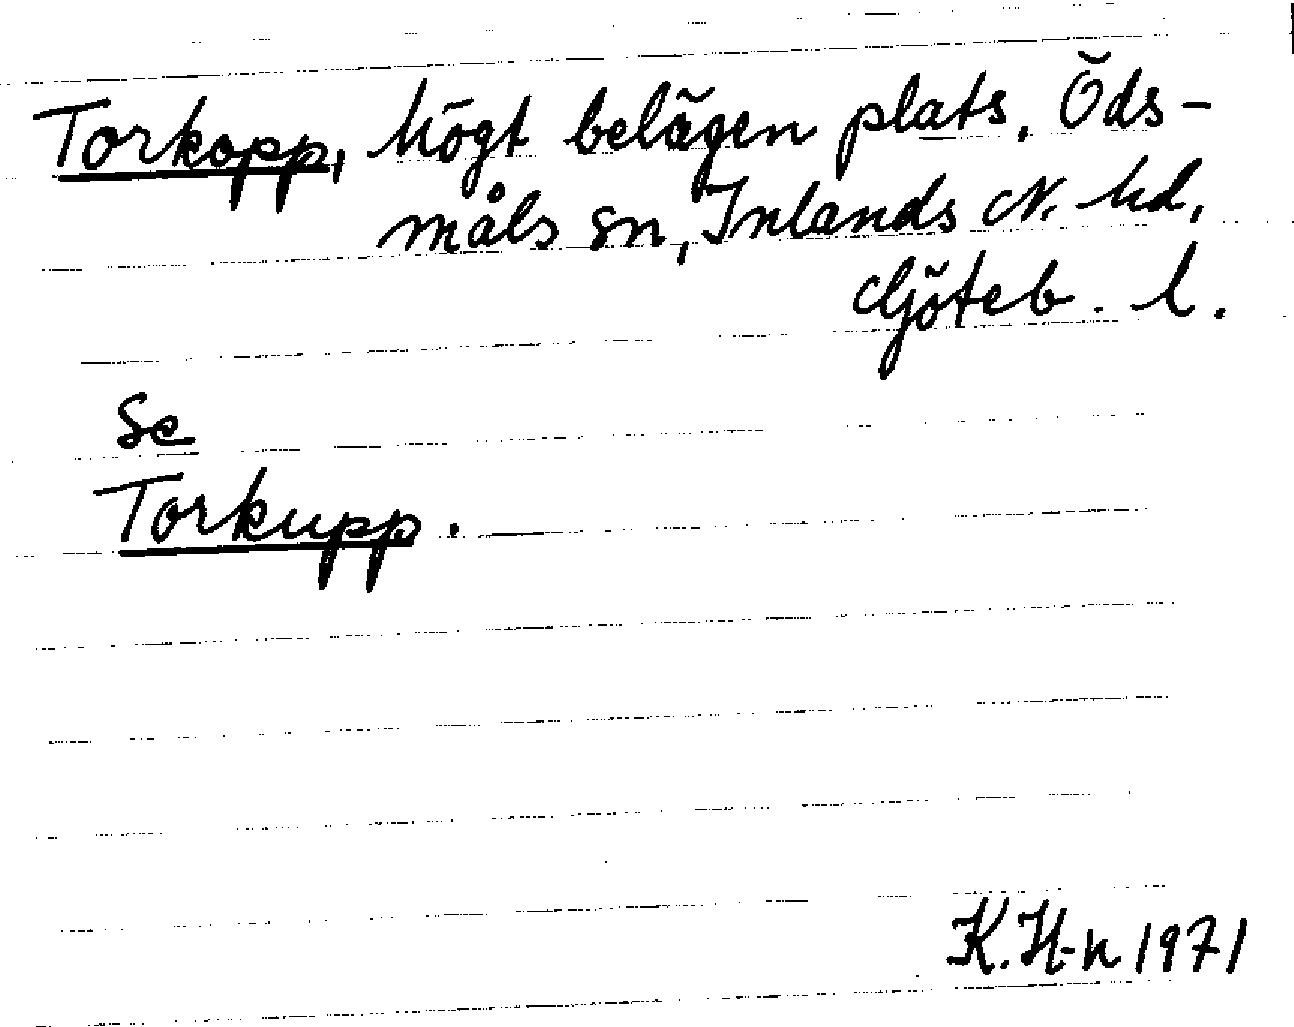 Torkopp, högt belägen plats, Öds-
måls sn, Inlands N. hd,
Göteb. l.
Se
Torkupp.
K. H-n 1971